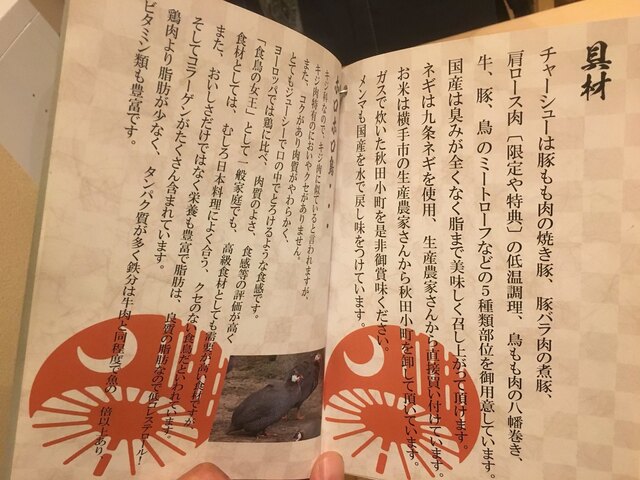 具材
チャーシューは豚もも肉の焼き豚、豚バラ肉の煮豚、
肩ロース肉〔限定や特典〕の低温調理、鳥もも肉の八幡巻き、
牛、豚、鳥のミートローフなどの5種類部位を御用意しています。
国産は臭みが全くなく脂まで美味しく召し上がって頂けます。
ネギは九条ネギを使用、生産農家さんから直接買い付けています。
お米は横手市の生産農家さんから秋田小町を卸して頂いています。
ガスで炊いた秋田小町を是非御賞味ください。
メンマも国産を水で戻し味をつけています。
ほろほろ鳥・・・
キジ科なので、キジ肉に似ていると言われますが、
キジ肉特有のにおいやクセがありません。
また、コクがあり肉質がやわらかく、
とてもジューシーで口の中でとろけるような食感です。
ヨーロッパでは鶏に比べ、肉質のよさ、食感等の評価が高く
「食鳥の女王」として一般家庭でも、高級食材としても需要が高い食材ですが
食材としては、むしろ日本料理によく合う、クセのない食鳥だといわれています。
また、おいしさだけではなく栄養も豊富で脂肪は、良質の脂肪なので低コレステロール！
そしてコラーゲンがたくさん含まれています。
鶏肉より脂肪が少なく、タンパク質が多く鉄分は牛肉と同程度で魚の 倍以上あり、
ビタミン類も豊富です。